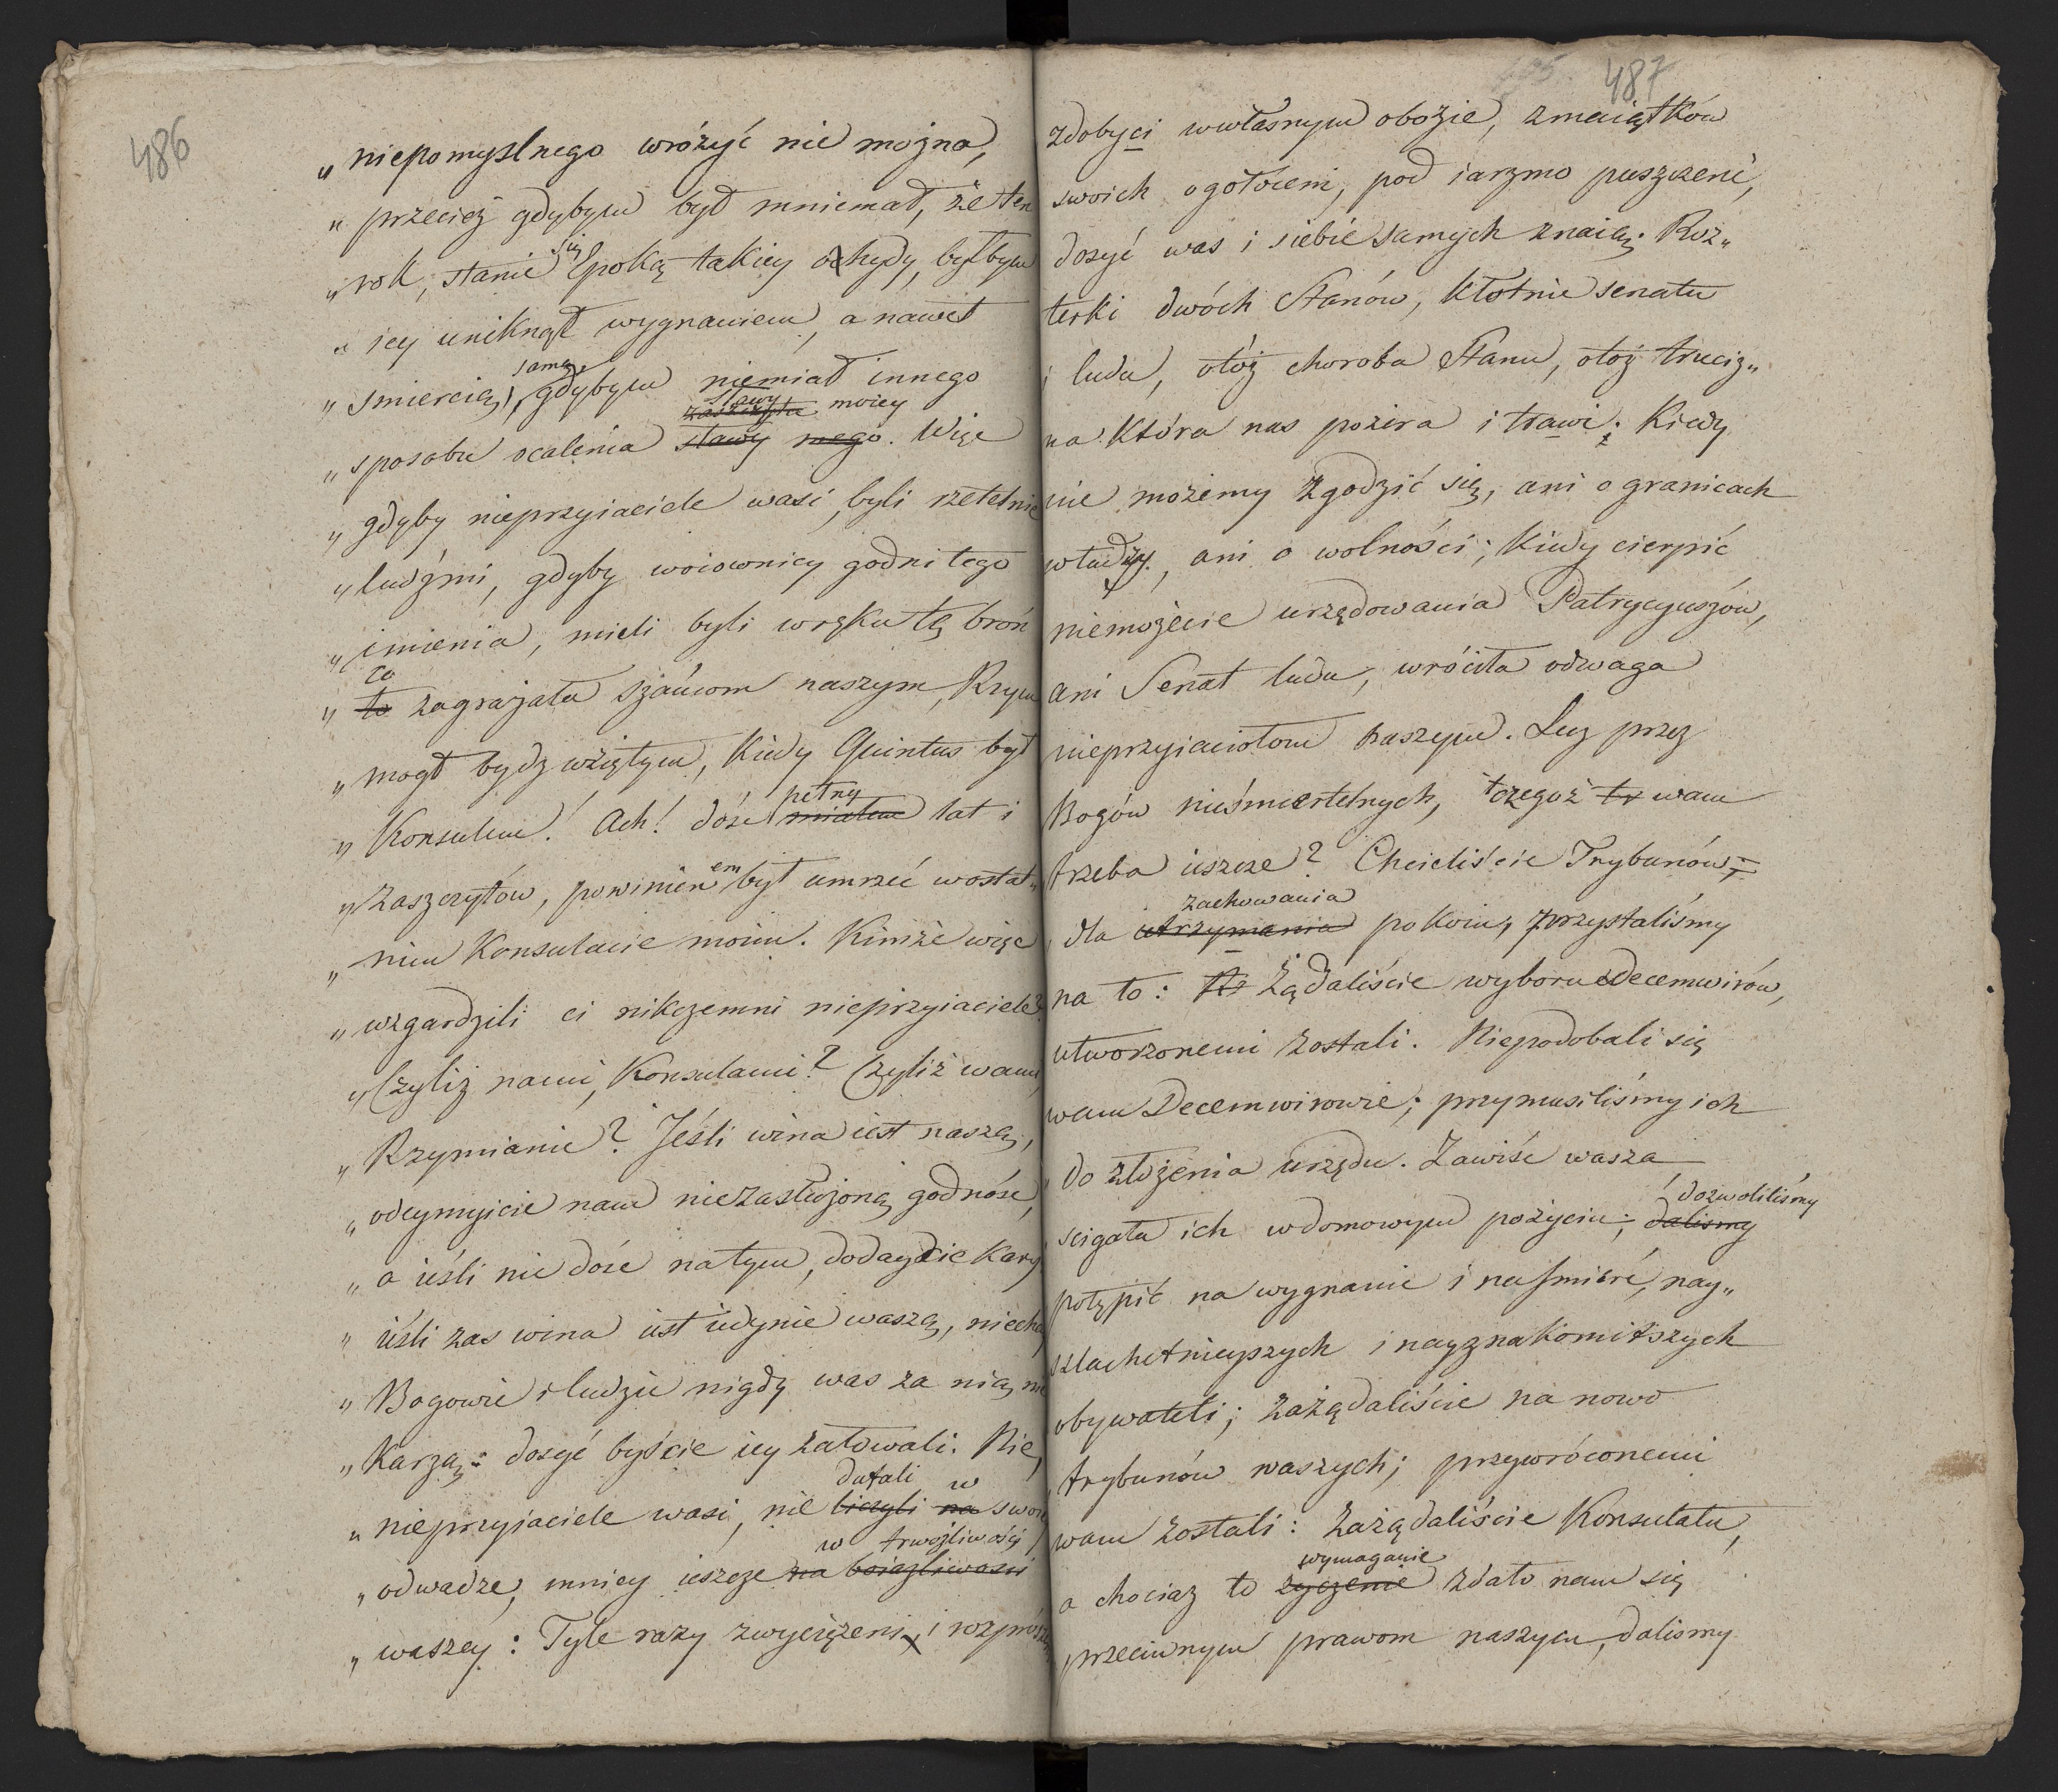 486
„ niepomyslnego wróżyć nie można,
„ przecież gdybym był mniemał, że ten
„ rok, stanie się Epoką takiey ochydy, byłbym
„ iey uniknął wygnaniem, a nawet
„ smiercią samą, gdybym niemiał innego
sławy
zaszczytu moiey
„ sposobu ocalenia sławy mego. Więc
„ gdyby nieprzyiaciele wasi, byli rzetelnie
„ ludźmi, gdyby woiownicy godni tego
„ imienia, mieli byli w ręku tę broń
co
„ to zagrażała szańcom naszym, Rzym
„ mogł bydz wziętym, kiedy Quintus był
pełny
„ Konsulem! Ach! dość miałem lat i
„ zaszczytów, powinienem był umrzeć w ostat„
„ nim Konsulacie moim. Kimże więc
„ wzgardzili ci nikczemni nieprzyiaciele?
„ Czyliż nami, Konsulami? Czyliż wami,
„ Rzymianie? Jeśli wina iest naszą,
„ odeymyicie nam niezasłużoną godność,
„ a ieśli nie dość na tym, dodaycie kary
„ ieśli zas wina iest iedynie waszą, niechay
„ Bogowie i ludzie nigdy was za nią nie
„ karzą: dosyć byście iey żałowali. Nie,
dufali w
„ nieprzyiaciele wasi, nie liczyli na swoiey
w trwożliwości
„ odwadze, mniey ieszcze na boiaźliwości
„ waszey: Tyle razy zwyciężeni, i rozprósze„
487
zdobyci w własnym obozie, z maiątków
swoich ogołoceni, pod iarzmo puszczeni,
dosyć was i siebie samych znaią. Roz„
terki dwóch Stanów, kłotnie senatu
i ludu, otóż choroba Stanu, otoż truciz„
na która nas pożera i trawi; kiedy
nie możemy zgodzić się, ani o granicach
władzy, ani o wolności; kiedy cierpić
niemożecie urzędowania Patrycyuszów,
ani Senat ludu, wróciła odwaga
nieprzyiaciołom naszym. Lecz przez
Bogów nieśmiertelnych, czegoż to wam
trzeba ieszcze? Chcieliście Trybunów;
zachowania
dla utrzymania pokoiu, przystaliśmy
na to: Żądaliście wyboru Decemwirów,
utworzonemi zostali. Niepodobali się
wam Decemwirowie; przymusiliśmy ich
do złożenia urzędu. Zawiść wasza
dozwoliliśmy
scigała ich w domowym pożyciu; dalismy
potępić na wygnanie i na smierć, nay„
szlachetnieyszych i nayznakomitszych
obywateli; zażądaliście na nowo
trybunów waszych; przywróconemi
wam zostali: zażądaliście Konsulatu,
wymaganie
a chociaz to życzenie zdało nam się
przeciwnym prawom naszym, dalismy